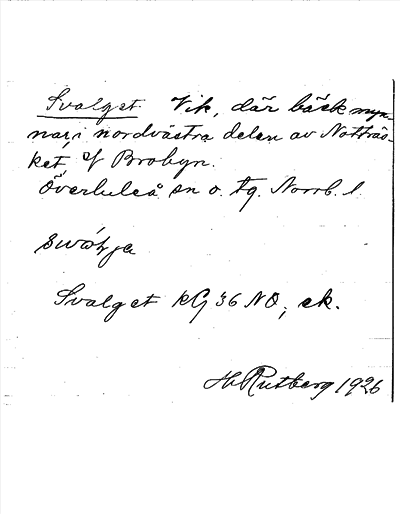 Svalget. Vik, där bäck myn-
nar i nordvästra delen av Notträs-
ket, Brobyn.
Överluleå sn o. tg. Norrb. l.
Svalget KG 36 NO, ek.
H Rutberg 1926